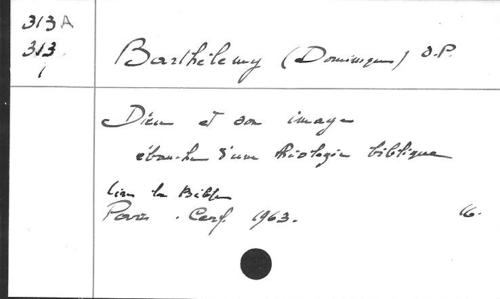 313A
313.
1
Barthélemy (Dominique) O.P.
Dieu et son image
ébauche d'une théologie biblique
Lire la Bible
Paris. Cerf. 1963. 16.